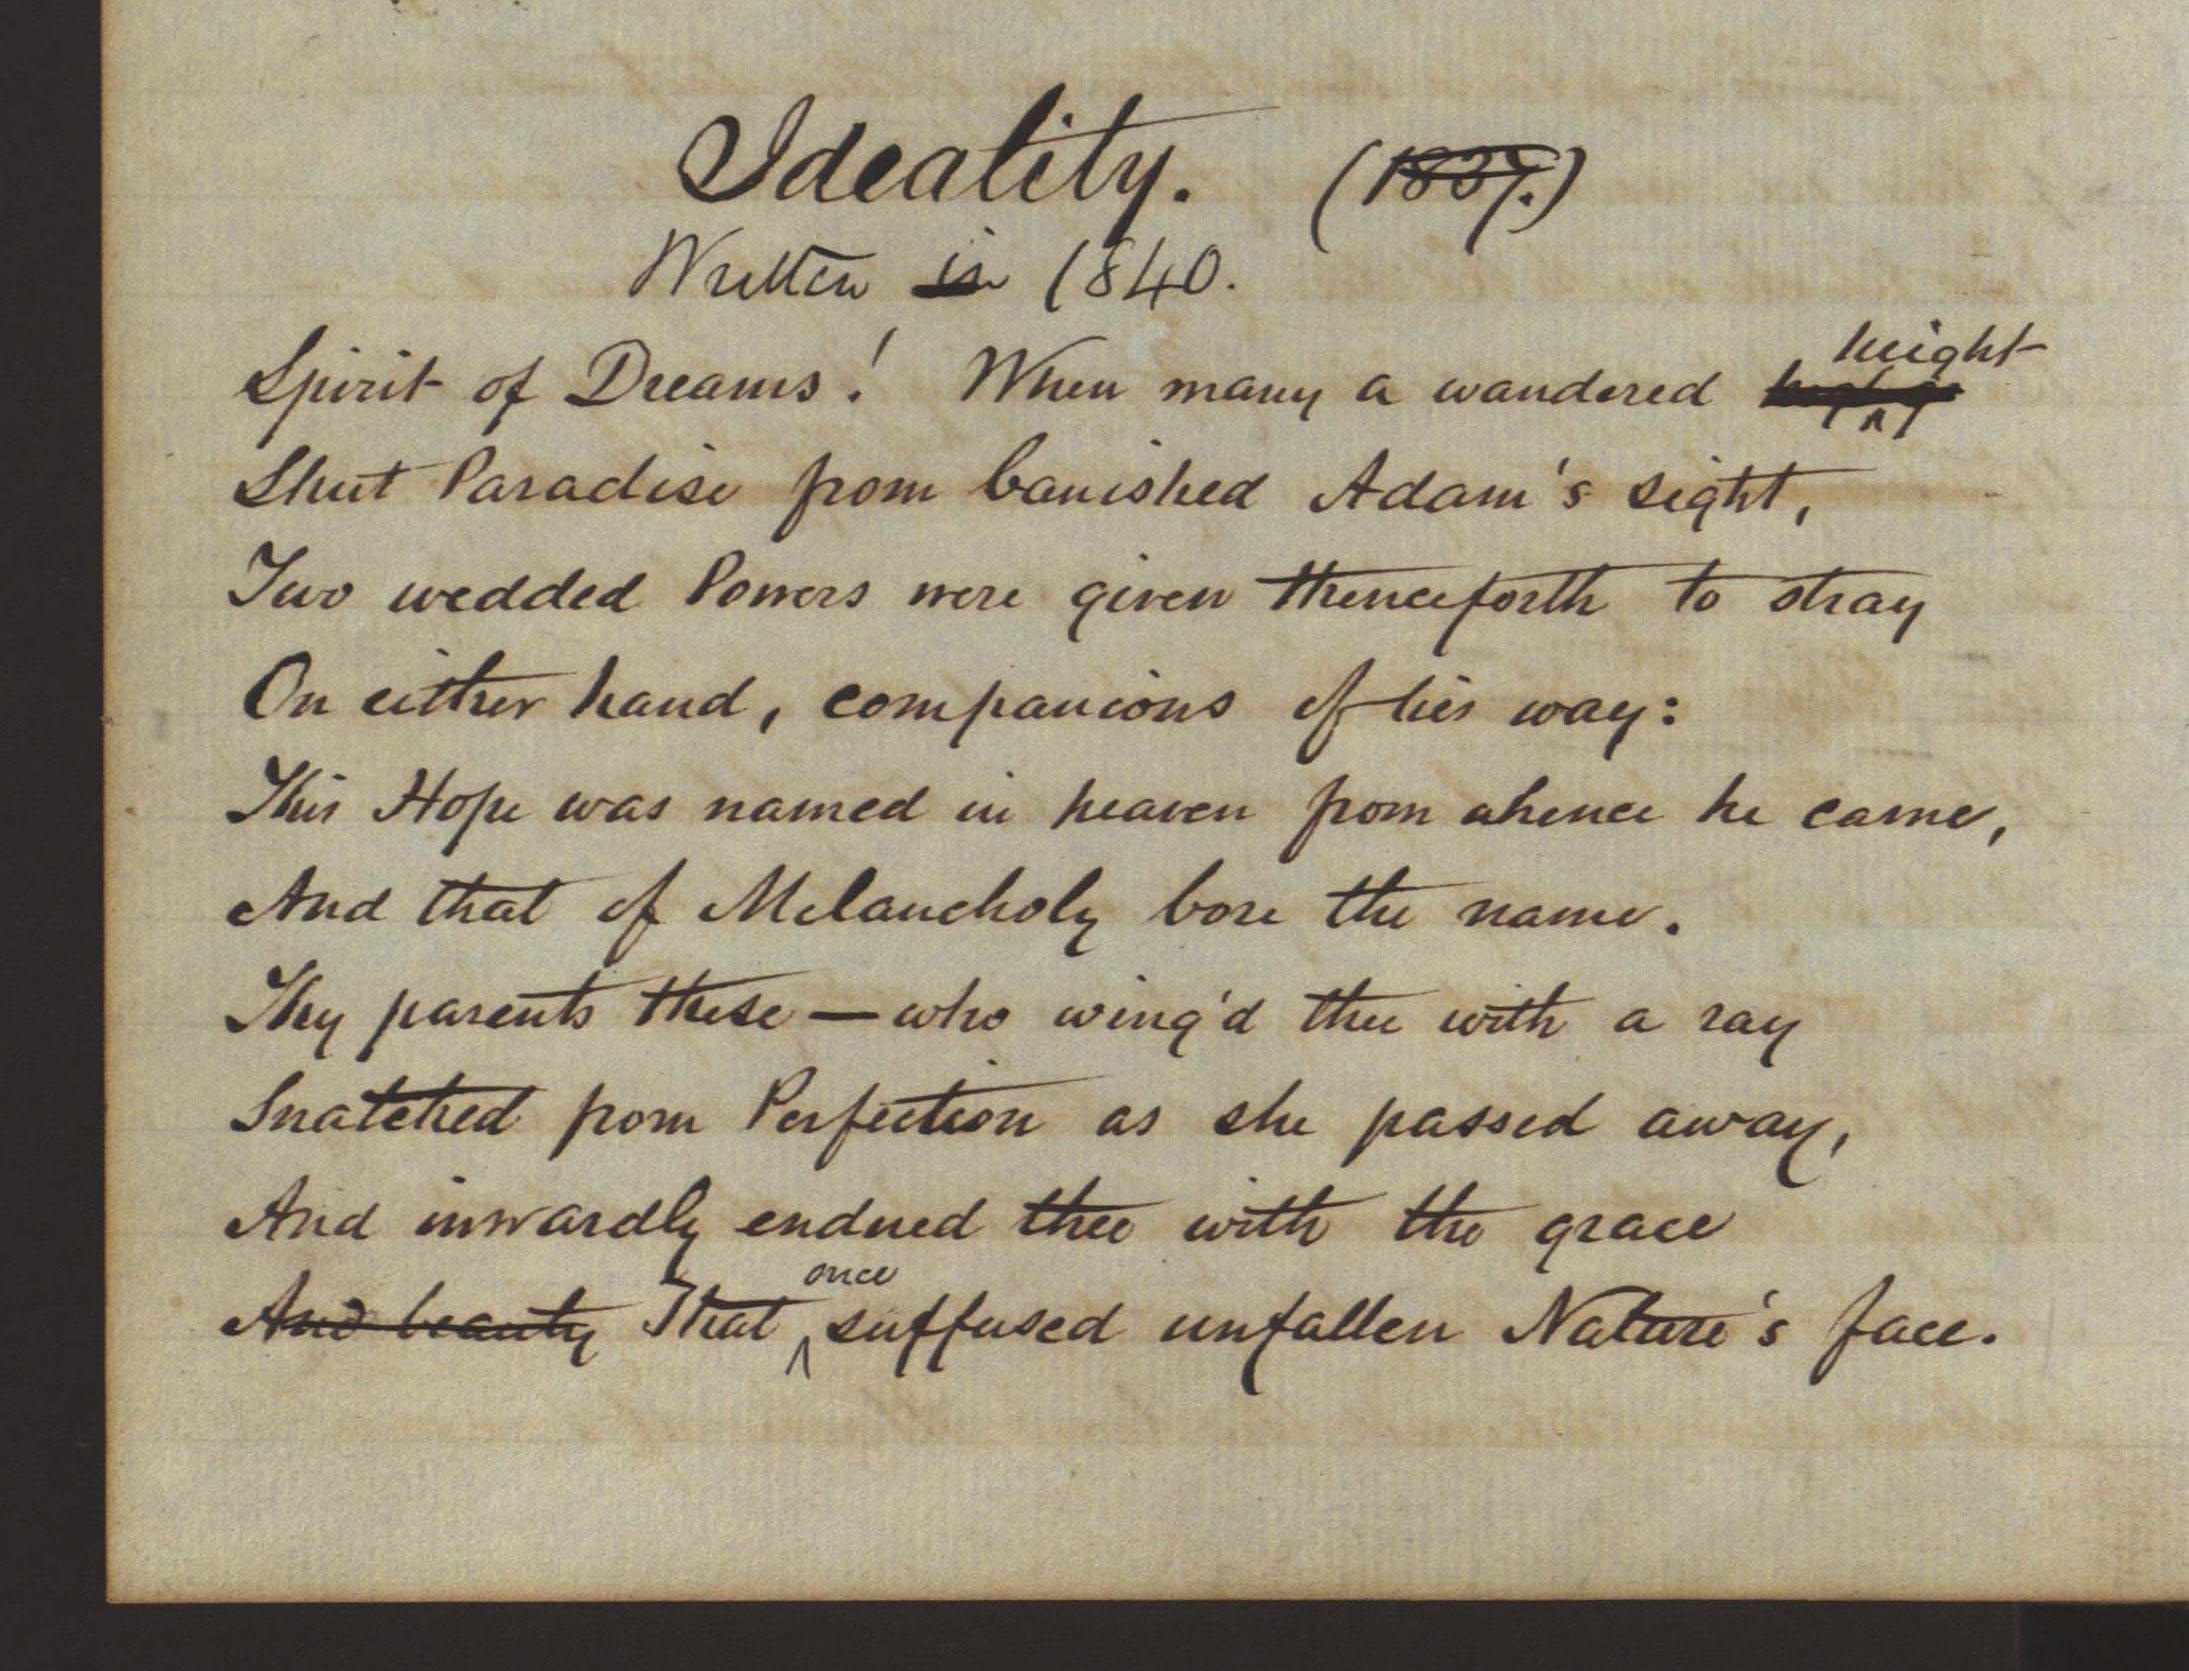 Ideality. (1837.)
Written in 1840.
Spirit of Dreams! When many a wandered height
Shut Paradise from banished Adam's sight,
Two wedded Powers were given thenceforth to stray
On either hand, companions of his way:
This Hope was named in heaven from whence he came,
And that of Melancholy bore the name.
Thy parents these — who wing'd thee with a ray
Snatched from Perfection as she passed away,
And inwardly endued thee with the grace
And beauty That once suffused unfallen Nature's face.